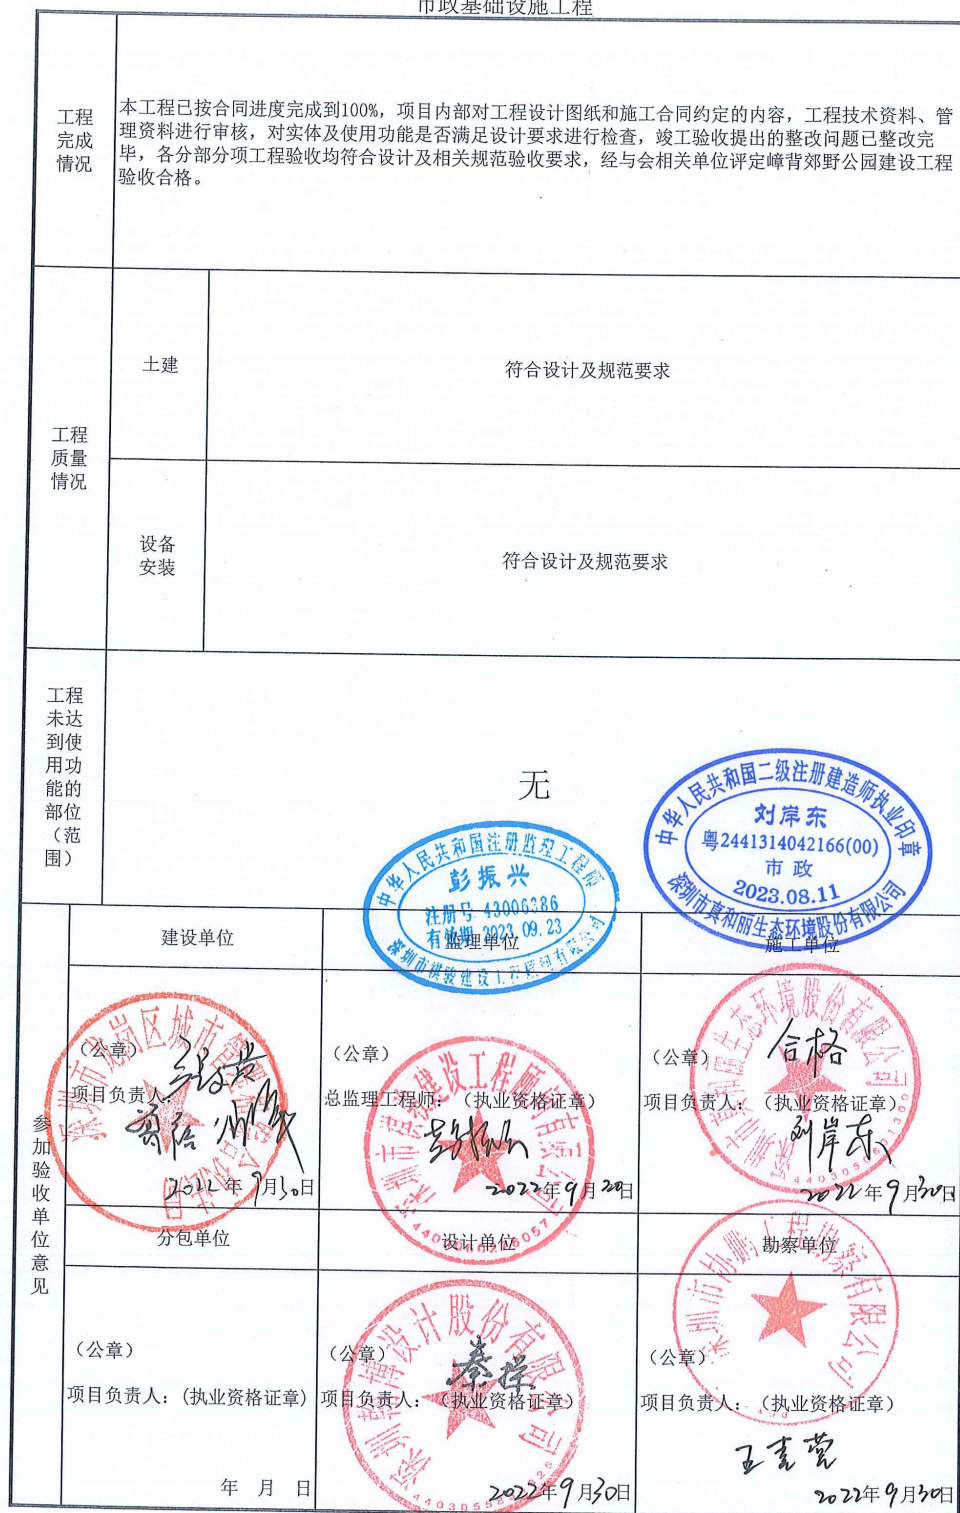 市政基础设施工程
工程
完成
情况
本工程已按合同进度完成到100%，项目内部对工程设计图纸和施工合同约定的内容，工程技术资料、管
理资料进行审核，对实体及使用功能是否满足设计要求进行检查，竣工验收提出的整改问题已整改完
毕，各分部分项工程验收均符合设计及相关规范验收要求，经与会相关单位评定嶂背郊野公园建设工程
验收合格。
工程
质量
情况
土建
符合设计及规范要求
设备
安装
符合设计及规范要求
工程
未达
到使
用功
能的
部位
（范
围）
无
中华人民共和国注册监理工程师
彭振兴
注册号 43006386
有效期 2023.09.23
中华人民共和国二级注册建造师执业印章
刘岸东
粤2441314042166(00)
市政
2023.08.11
深圳市真和丽生态环境股份有限公司
参加验收单位意见
建设单位
监理单位
施工单位
（公章）
项目负责人：
2022年9月30日
（公章）
总监理工程师：（执业资格证章）
彭振兴
2022年9月20日
（公章）
合格
项目负责人：（执业资格证章）
刘岸东
2022年9月30日
分包单位
设计单位
勘察单位
（公章）
项目负责人：（执业资格证章）
年 月 日
（公章）
秦操
项目负责人：（执业资格证章）
2022年9月30日
深圳市协鹏工程勘察有限公司
（公章）
项目负责人：（执业资格证章）
2022年9月30日